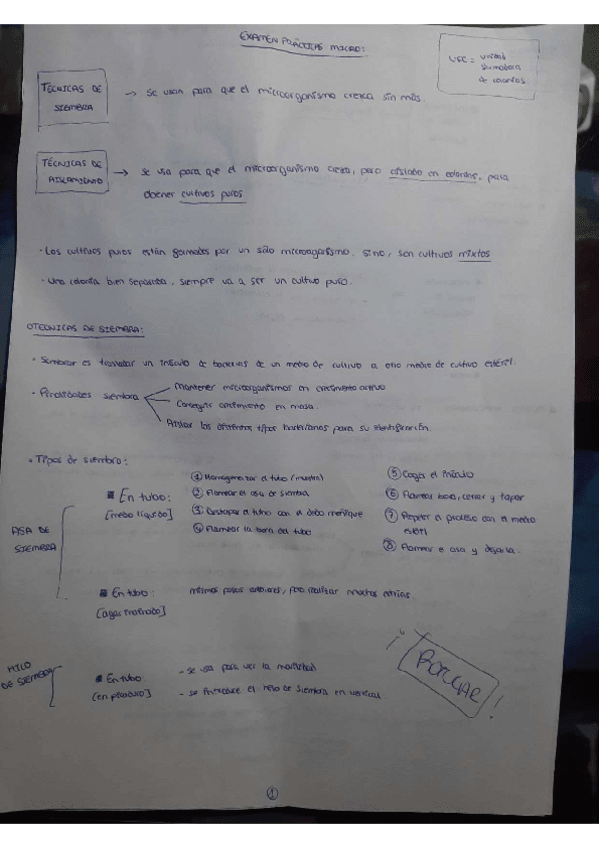 EXAMEN PRÁCTICAS MICRO:
UFC = unidad
formadora
de colonias
TÉCNICAS DE
SIEMBRA
→ Se usan para que el microorganismo crezca sin más.
TÉCNICAS DE
AISLAMIENTO
→ Se usa para que el microorganismo crezca, pero aislado en colonias, para
obtener cultivos puros
· Los cultivos puros están formados por un sólo microorganismo. Sino, son cultivos mixtos
· Una colonia bien separada, siempre va a ser un cultivo puro.
TECNICAS DE SIEMBRA:
· Sembrar es trasladar un inóculo de bacterias de un medio de cultivo a otro medio de cultivo estéril.
· Finalidades siembra
Mantener microorganismos en crecimiento activo
Conseguir crecimiento en masa.
Aislar los diferentes tipos bacterianos para su identificación.
· Tipos de siembra:
ASA DE
SIEMBRA
■ En tubo:
[medio líquido]
① Homogeneizar el tubo (muestra)
② Flamear el asa de siembra
③ Destapar el tubo con el dedo meñique
④ Flamear la boca del tubo
⑤ Coger el inóculo
⑥ Flamear boca, cerrar y tapar
⑦ Repetir el proceso con el medio
estéril
⑧ Flamear el asa y dejarla.
■ En tubo:
[agar inclinado]
mismos pasos anteriores, pero realizar muchas estrías.
HILO
DE SIEMBRA
■ En tubo:
[en picadura]
- se usa para ver la movilidad
- se introduce el hilo de siembra en vertical
¡¡ !
①